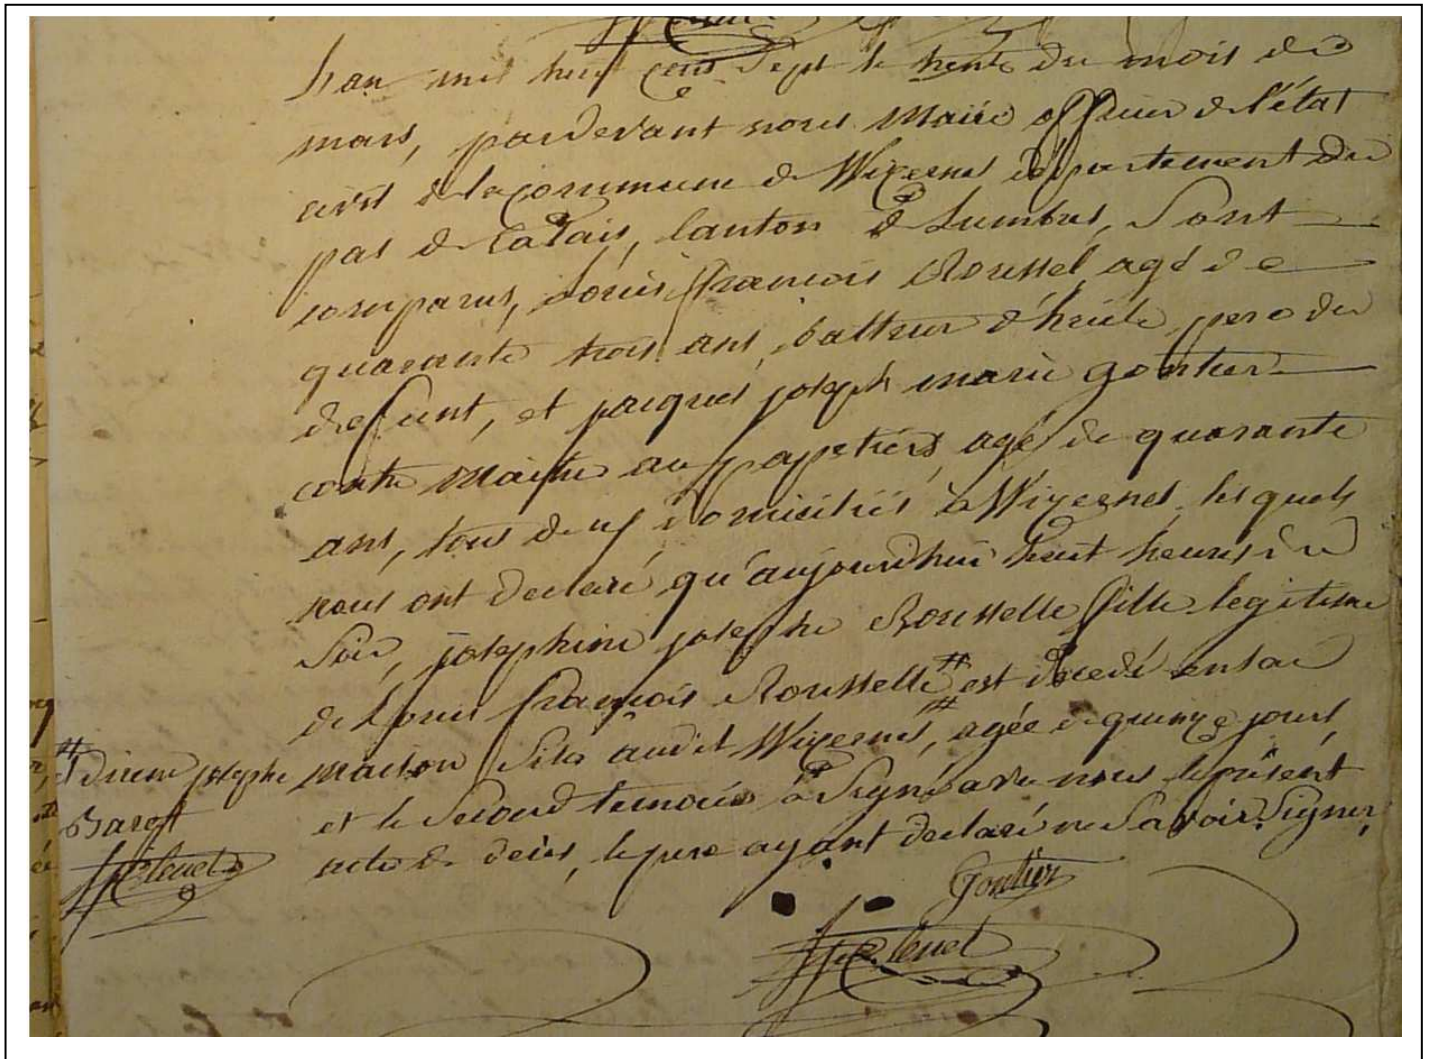 Lan mil huit cent sept le trente du mois de
mars, pardevant nous Maire officier de l'état
civil de la commune de Wizernes département du
pas de Calais, Canton de Lumbres, Sont
comparus, Louis françois Roussel, agé de
quarante trois ans, batteur d'huile, pere du
defunt, et jacques joseph marie gontier
contre Maitre aux papetiers, agé de quarante
ans, tous deux domiciliés à Wizernes, lesquels
nous ont declaré qu'aujourdhui huit heures du
Soir, josephine josephe Rousselle fille legitime
de Louis françois Rousselle # est décedé en sa
maison Sise audit Wizernes #, agée de quinze jours,
et le Second temoin à Signé avec nous le présent
acte de décès, le pere ayant declaré ne Savoir Signer,
# et josephe
Baroff
Clenet
Gontier
Clenet